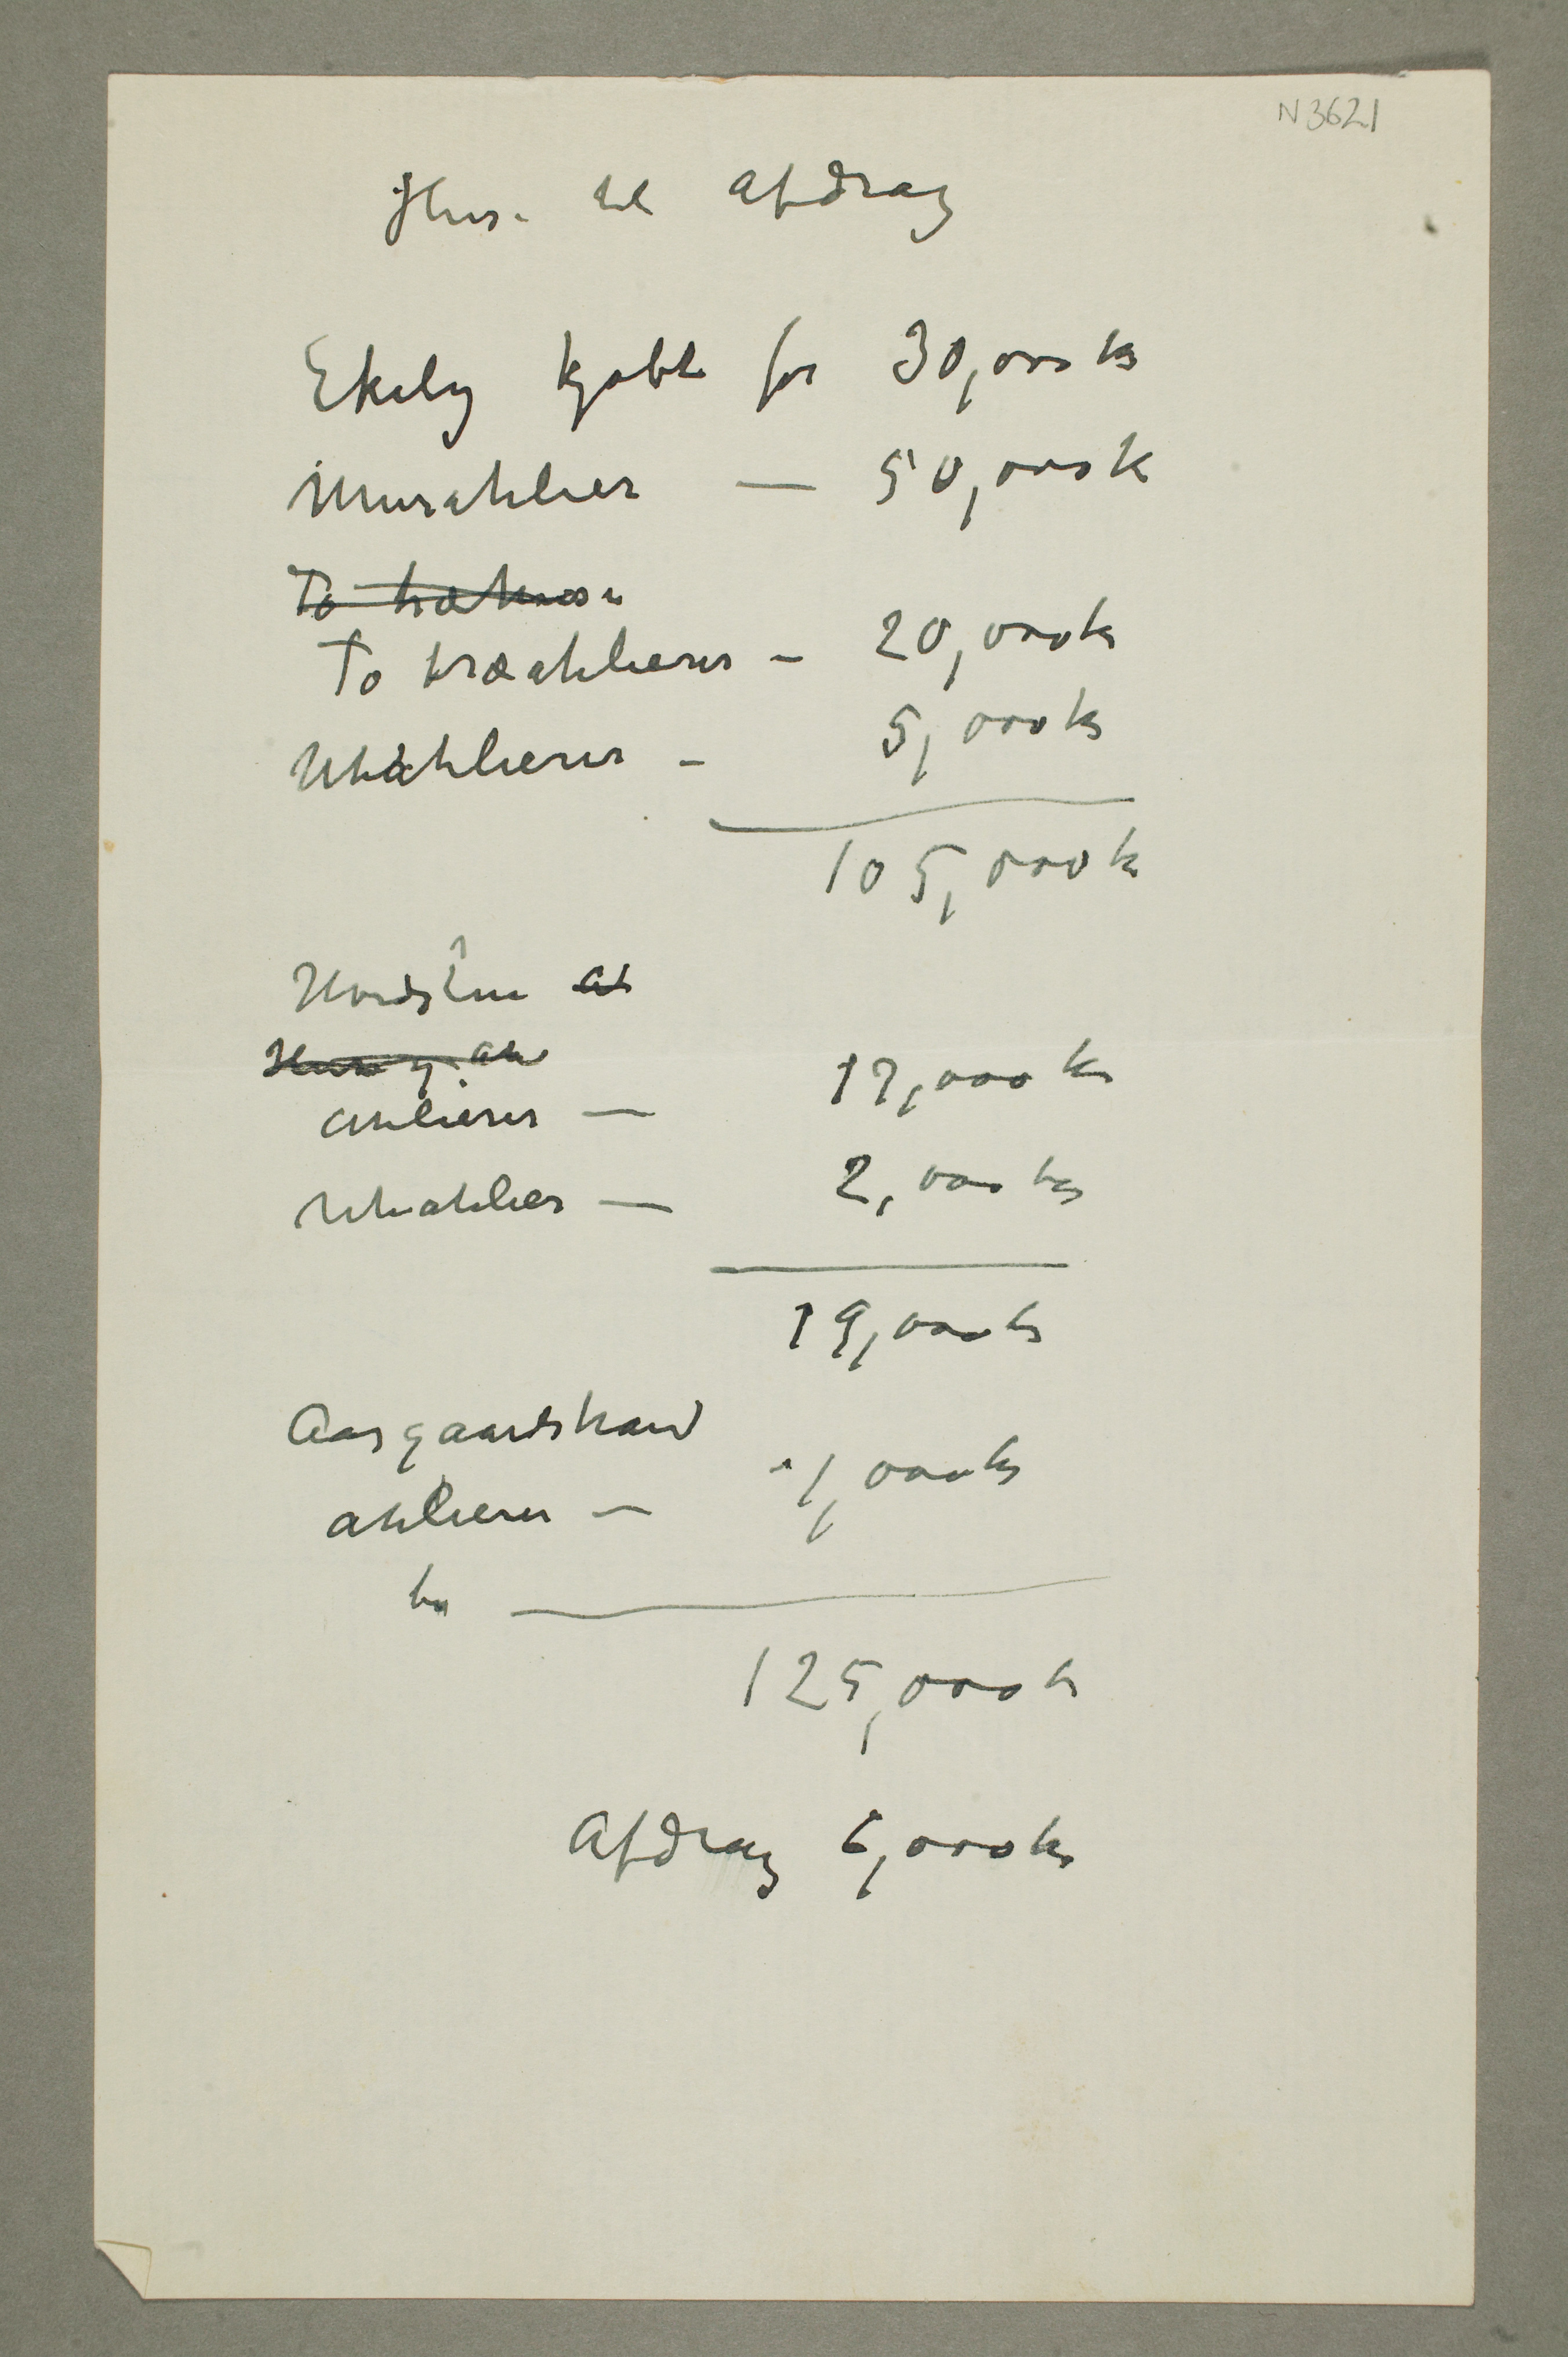 N3621
Hus. til Afdrag
Ekely kjøbt for 30,000 kr
Muratelier — 50,000 k
To træhuse
To træatelierer – 20,000 kr
Uteatelierer – 5,000 kr
105,000 kr
Hvidsten at
Hus og ate
atelierer — 17,000 kr
Uteatelier — 2,000 kr
19,000 kr
Aasgaardstrand
atelierer — 1,000 kr
125,000 kr
Afdrag 6,000 kr